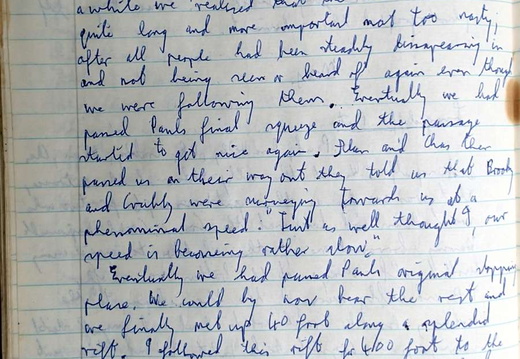 awhile we realised that the
quite long and more important not too nasty,
after all people had been steadily disappearing in
and not being seen or heard of again even though
we were following them. Eventually we had
passed Pauls final squeeze and the passage
started to get nice again. Alan and Chas then
passed us on their way out they told us that Brody
and Crabby were surveying towards us at a
phenominal speed. "Just as well thought I, our
speed is becoming rather slow."
Eventually we had passed Pauls original stopping
place. We could by now hear the rest and
we finally met up 40 foot along a splendid
rift. I followed this rift for 400 foot to the